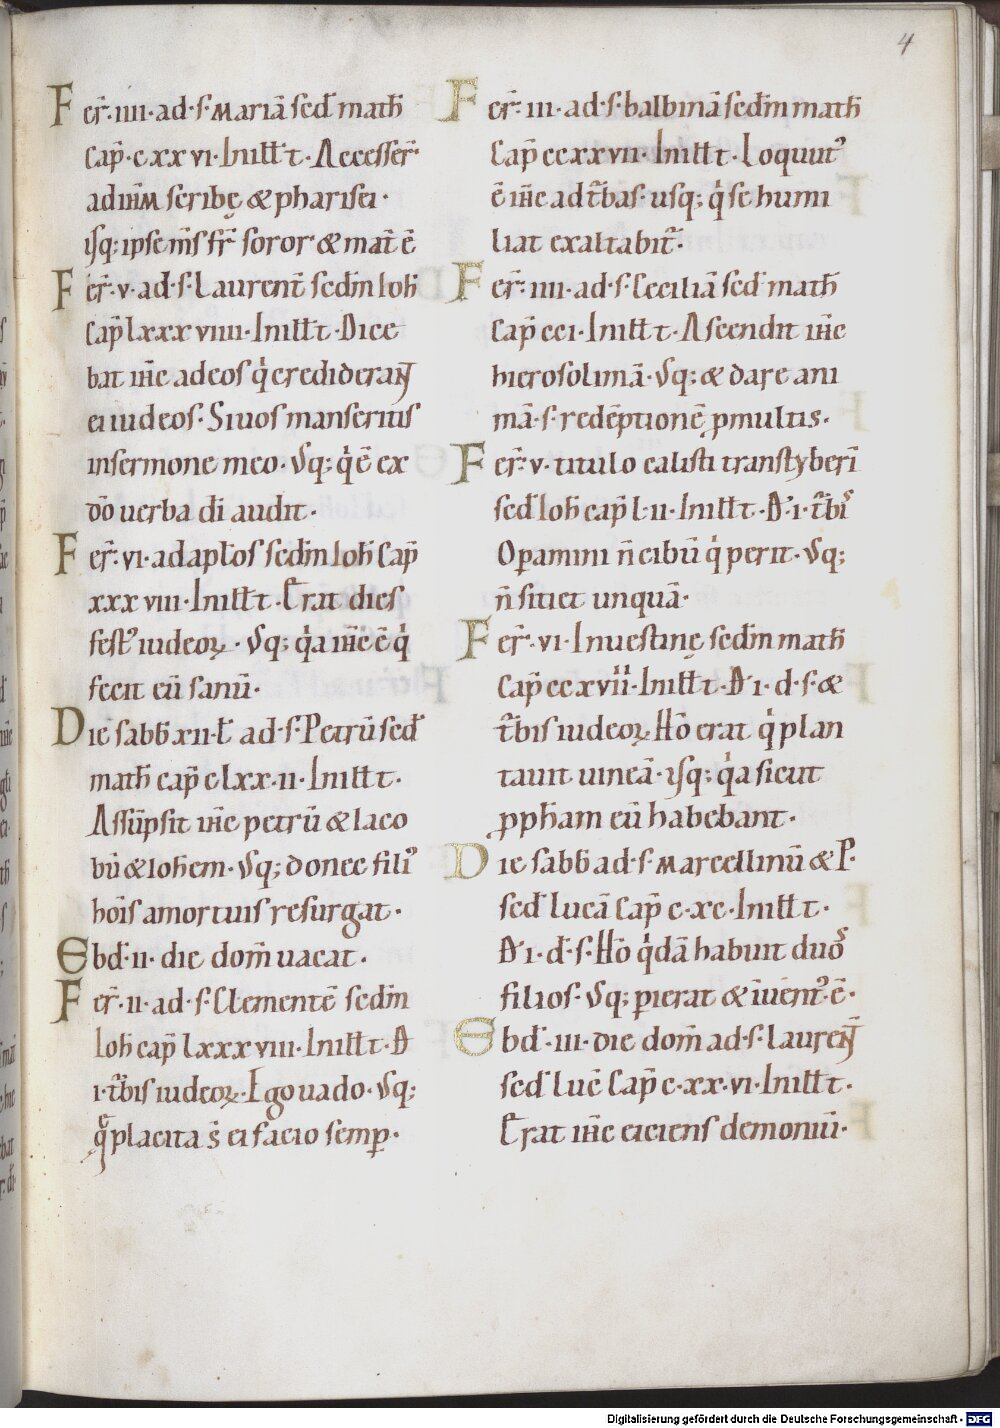 4
Fer̃. iiii. ad. s. mariã sed̃ math̃
cap̃. cxxvi. Initt̃t. Accesser̃
ad ih̃m scribę & pharisei.
usq; ipse m̃s fr̃ soror & mat̃ ẽ
Fer̃. v. ad. s. Laurent̃ sed̃m Ioh̃
cap̃ lxxxviiii. Initt̃t. Dice
bat ih̃c ad eos q̓ crediderant
ei iudeos. Si uos manseritis
in sermone meo. Vsq; q̓ ẽ ex
d̃o uerba d̃i audit.
Fer̃. vi. ad aplõs sed̃m Ioh̃ cap̃
xxxviii. Initt̃t. Erat dies
fest᾿ iudeoꝝ. Vsq; q̓a ih̃c ẽ q̓
fecit eũ sanũ.
Die sabb̃ xii. l̃ ad. s. Petrũ sed̃
math̃ cap̃ clxx.ii. Initt̃t.
Assũpsit ih̃c petrũ & Iaco
bũ & Ioh̃em. Vsq; donec fili᾿
hõis a mortuis resurgat.
Ebd̃. ii. die dom̃ uacat.
Fer̃. ii. ad. s. Clementẽ sed̃m
Ioh̃ cap̃ lxxxviii. Initt̃t. D᾿
i. t̃bis iudeoꝝ. Ego uado. Vsq;
q̃ placita s̃ ei facio semꝑ.
Fer̃. iii. ad. s. balbinã sed̃m math̃
Cap̃ ccxxvii. Initt̃t. Loquut᾿
ẽ ih̃c ad t̃bas. usq; q̓ se humi
liat exaltabit̃.
Fer̃. iiii. ad. s. Ceciliã sed̃ math̃
Cap̃ cci. Initt̃t. Ascendit ih̃c
hierosolimã. Vsq; & dare ani
mã. s. redẽptionẽ ꝑ multis.
Fer̃. v. titulo calisti transtyberĩ
sed̃ Ioh̃ cap̃ l.ii. Initt̃t. D᾿. i. t̃bis
Oꝑamini ñ cibũ q̓ perit. Vsq;
ñ sitiet unquã.
Fer̃. vi. In uestinę sed̃m math̃
Cap̃ ccxvii. Initt̃t. D᾿ i. d. s. &
t̃bis iudeoꝝ. Hõ erat q̓ plan
tauit uineã. usq; q̓a sicut
ꝓph̃am eũ habebant.
Die sabb̃ ad. s. marcellinũ & P.
sed̃ lucã Cap̃ c. xc. Initt̃t.
D᾿ i. d̃. s. Hõ q̓dã habuit duos
filios. Vsq; ꝑierat & iñuent᾿. ẽ.
Ebd̃. iii. die dom̃ ad. s. laurent̃
sed̃ luc̃ Cap̃ c. xx. vi. Initt̃t.
Erat ih̃c eiciens demoniũ.
Digitalisierung gefördert durch die Deutsche Forschungsgemeinschaft - DFG